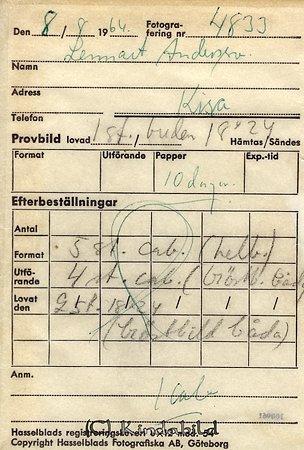 Den 8/8 1964 Fotogra-
fering nr 4833
Lennart Andersson
Namn
Adress
Kisa
Telefon
1 st. buden 18x24
Provbild lovad / Hämtas/Sändes
Format Utförande Papper Exp.-tid
10 dagar
Efterbeställningar
Antal
Format 5 st. cab. (helb.)
Utfö-
rande 4 st. cab. (bröstb. båda)
Lovat
den 2 st. 18x24 / / /
(bröstbild båda)
Anm.
1 cab
Hasselblads registreringskuvert
(C) Kindabild
Copyright Hasselblads Fotografiska AB, Göteborg